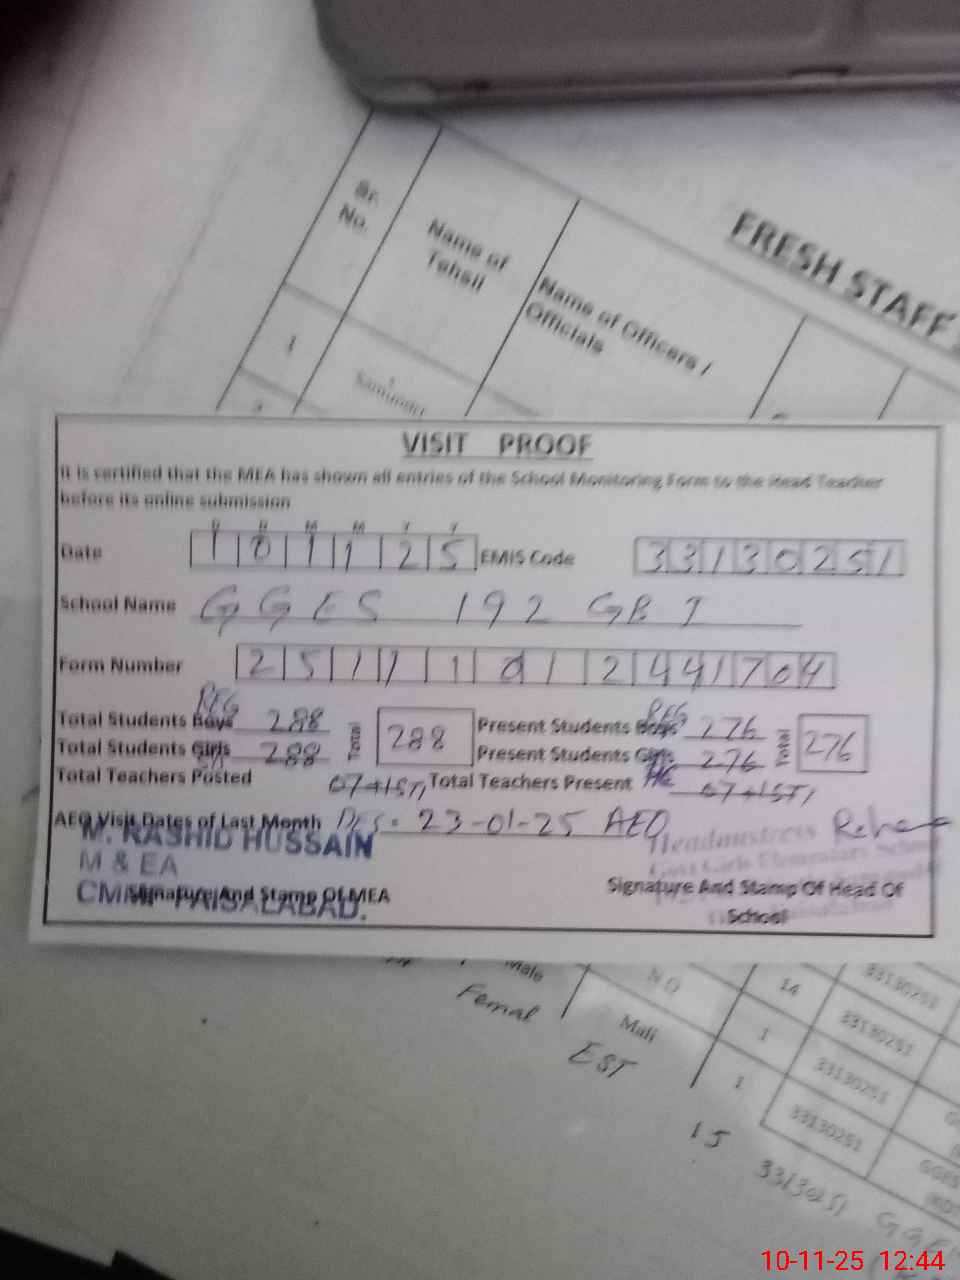 FRESH STAFF
Sr.
No.
Name of
Tehsil
Name of Officers /
Officials
1
VISIT PROOF
It is certified that the MEA has shown all entries of the School Monitoring Form to the Head Teacher
before its online submission
D D M M Y Y
Date 1 0 1 1 2 5 EMIS Code 3 3 1 3 0 2 5 1
School Name GGES 192 GB I
Form Number
REG REG
Total Students Boys 288 Total 288 Present Students Boys 276 Total 276
Total Students Girls 288 Present Students Girls 276
Total Teachers Posted 07+1STI Total Teachers Present 07+1STI
AEO Visit Dates of Last Month 23-01-25 AEO
M. RASHID HUSSAIN
M & EA
CMMF FAISALABAD.
Headmistress
Govt Girls Elementary School
Signature And Stamp Of MEA
Signature And Stamp Of Head Of
School
Male
Femal
N Q
14
33130251
Mali
1
33130251
EST
1
33130251
33130251
GGES
15 33130251 GGE
10-11-25 12:44